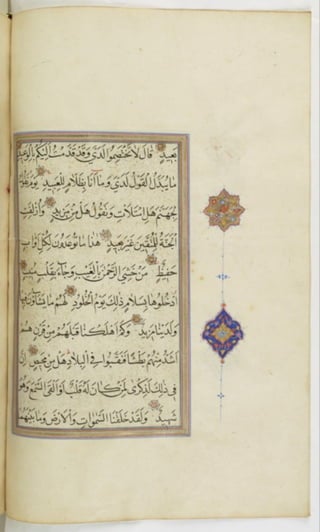 بَعِيدٍ قَالَ لَا تَخْتَصِمُوا لَدَيَّ وَقَدْ قَدَّمْتُ إِلَيْكُمْ بِالْوَعِيدِ
مَا يُبَدَّلُ الْقَوْلُ لَدَيَّ وَمَا أَنَا بِظَلَّامٍ لِلْعَبِيدِ يَوْمَ نَقُولُ
لِجَهَنَّمَ هَلِ امْتَلَأْتِ وَتَقُولُ هَلْ مِنْ مَزِيدٍ وَأُزْلِفَتِ
الْجَنَّةُ لِلْمُتَّقِينَ غَيْرَ بَعِيدٍ هَذَا مَا تُوعَدُونَ لِكُلِّ أَوَّابٍ
حَفِيظٍ مَنْ خَشِيَ الرَّحْمَنَ بِالْغَيْبِ وَجَاءَ بِقَلْبٍ مُنِيبٍ
ادْخُلُوهَا بِسَلَامٍ ذَلِكَ يَوْمُ الْخُلُودِ لَهُمْ مَا يَشَاءُونَ فِيهَا
وَلَدَيْنَا مَزِيدٌ وَكَمْ أَهْلَكْنَا قَبْلَهُمْ مِنْ قَرْنٍ هُمْ
أَشَدُّ مِنْهُمْ بَطْشًا فَنَقَّبُوا فِي الْبِلَادِ هَلْ مِنْ مَحِيصٍ إِنَّ
فِي ذَلِكَ لَذِكْرَى لِمَنْ كَانَ لَهُ قَلْبٌ أَوْ أَلْقَى السَّمْعَ وَهُوَ
شَهِيدٌ وَلَقَدْ خَلَقْنَا السَّمَوَاتِ وَالْأَرْضَ وَمَا بَيْنَهُمَا